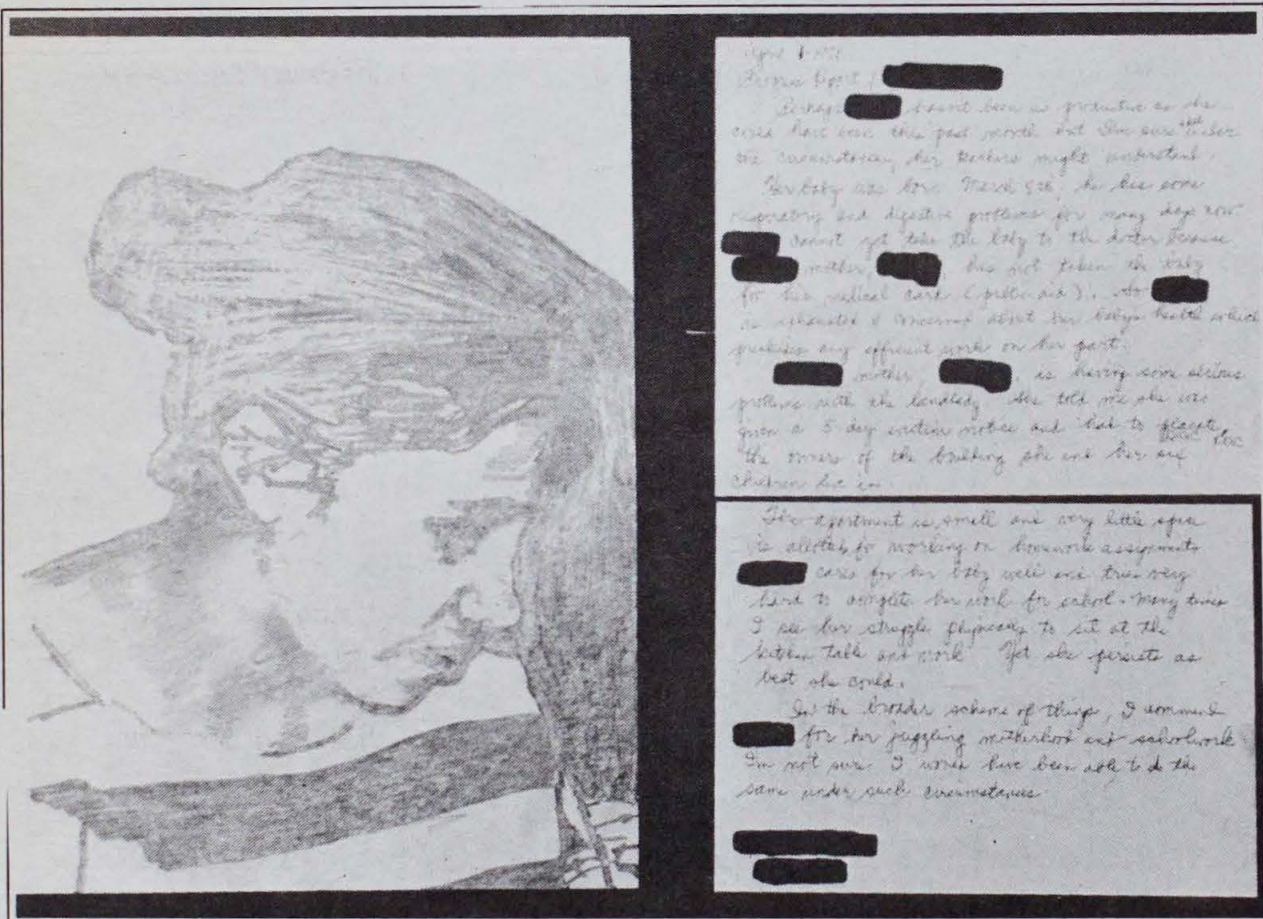 April
Progress Report /
Perhaps hasn't been as productive as she
could have been this past month but I'm sure that under
the circumstances, her teachers might understand.
Her baby was born March 9th, he has some
respiratory and digestive problems for many days now
cannot yet take the baby to the doctor because
mother, has not taken the baby
for his medical card (public aid). So
is exhausted & concerned about her baby's health which
precludes any efficient work on her part.
mother, is having some serious
problems with the landlady. She told me she was
given a 5 day eviction notice and had to placate
the owners of the building she and her six
children live in.
The apartment is small and very little space
is allotted for working on homework assignments
cares for her baby well and tries very
hard to complete her work for school. Many times
I see her struggle physically to sit at the
kitchen table and work Yet she persists as
best she could.
In the broader scheme of things, I commend
for her juggling motherhood and schoolwork
I'm not sure I would have been able to do the
same under such circumstances